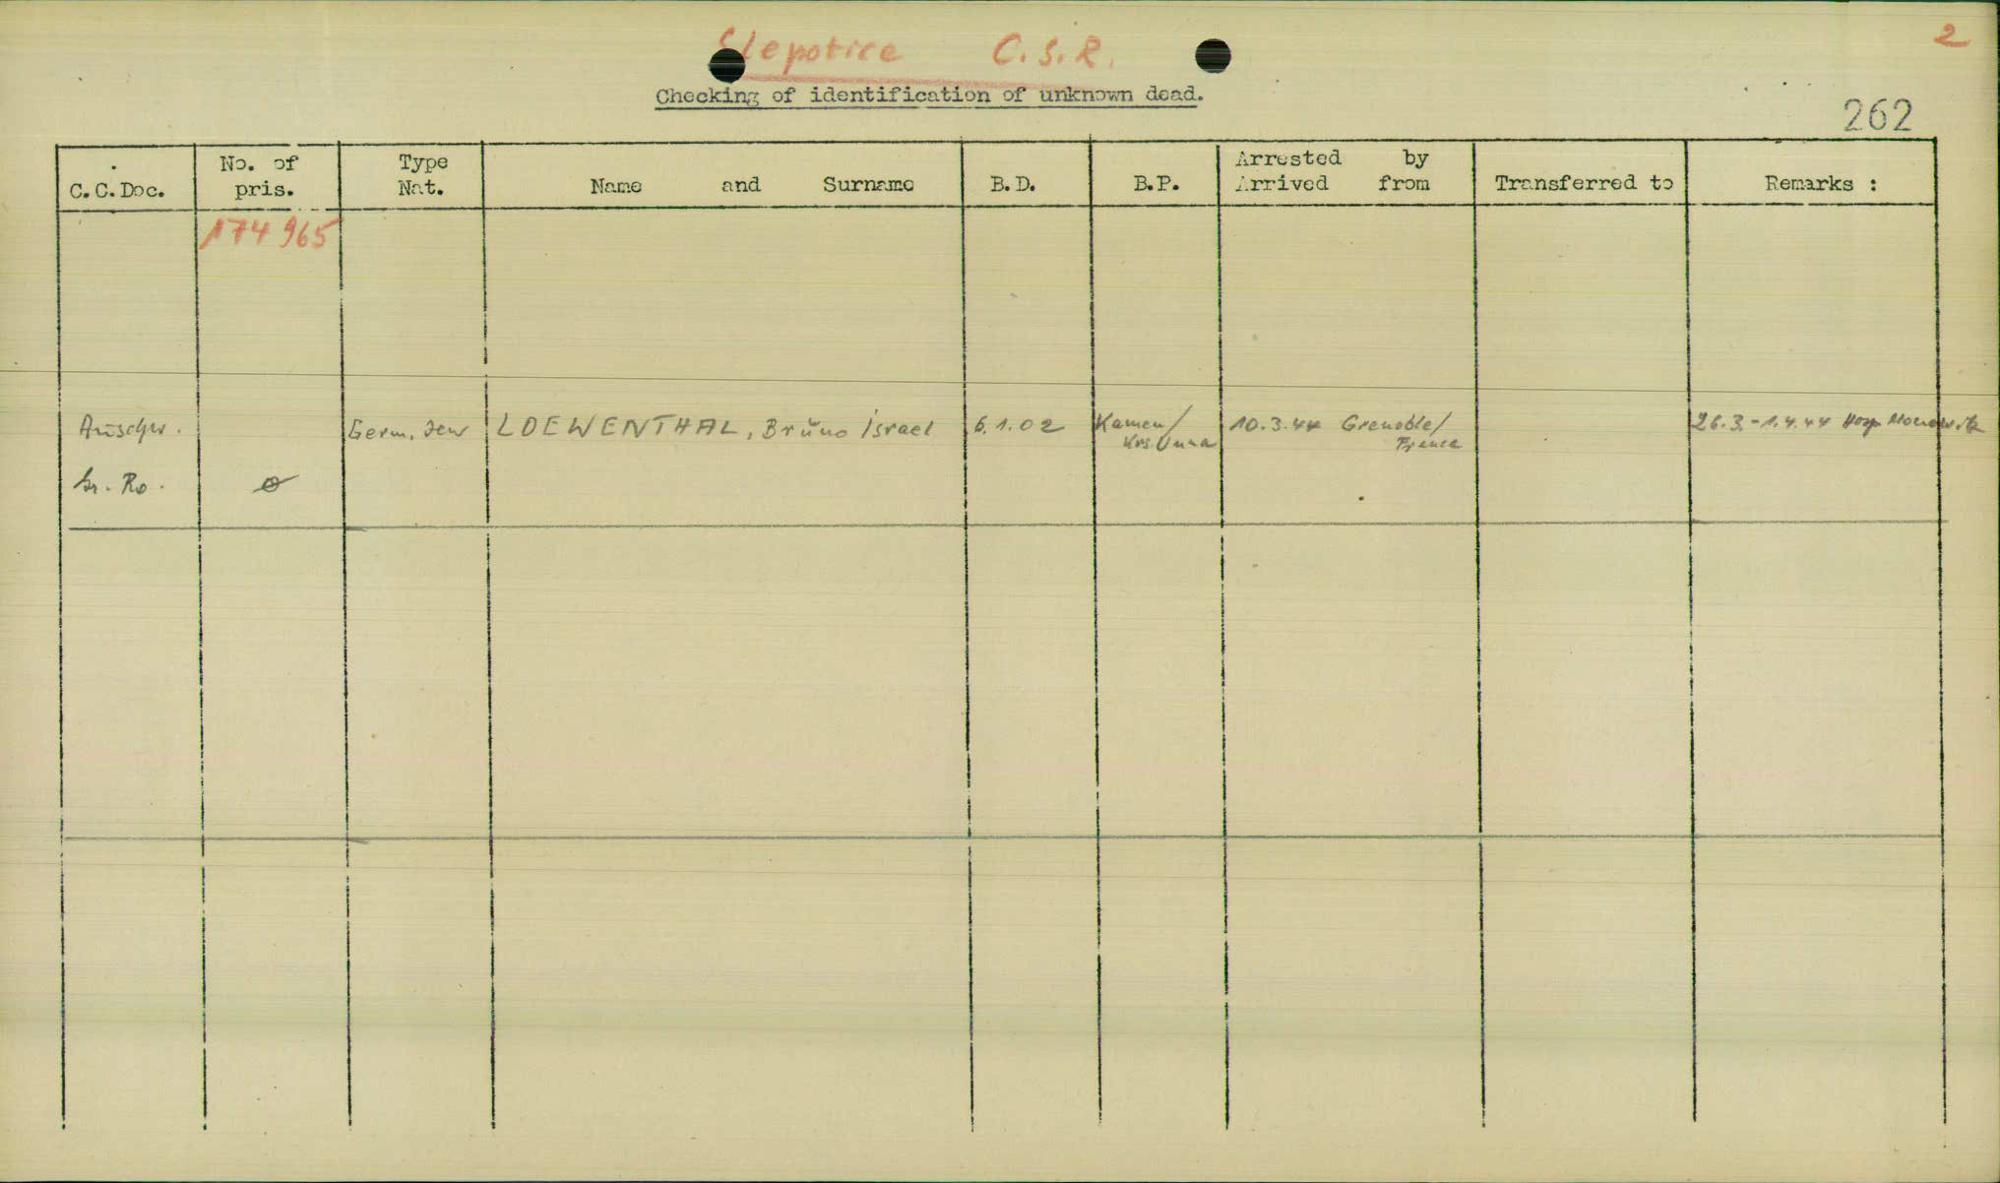 Slepotice C.S.R.
2
Checking of identification of unknown dead.
262
C.C.Doc.
No. of pris.
Type Nat.
Name and Surname
B.D.
B.P.
Arrested by
Arrived from
Transferred to
Remarks :
174 965
Auschw. Germ. Jew LOEWENTHAL, Bruno Israel 6.1.02 Kamen/ 10.3.44 Grenoble/ 26.3.-1.4.44 Hosp Monowitz
Krs. Unna France
Gr. Ro. ø